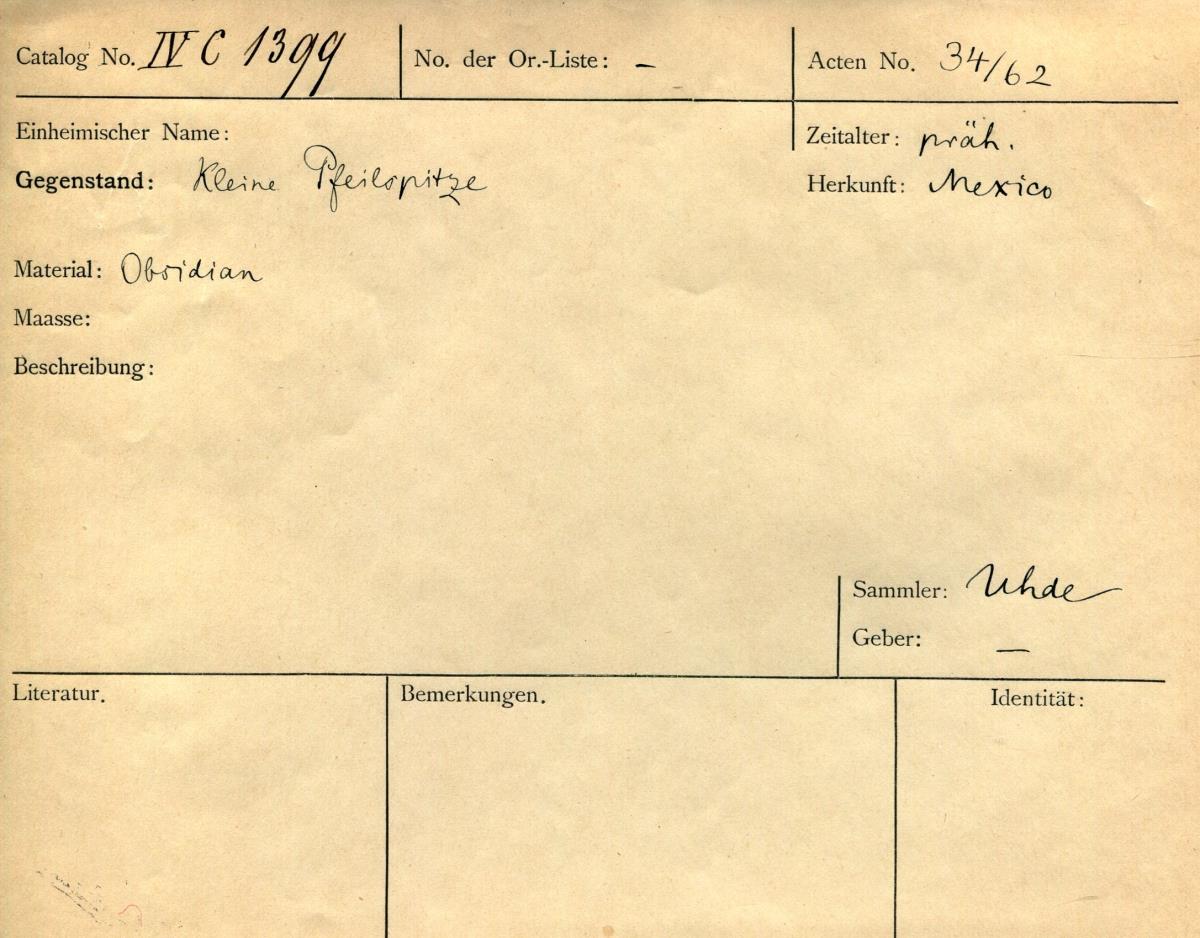 Catalog No. IV C 1399 No. der Or.-Liste: – Acten No. 34/62
Einheimischer Name: Zeitalter: präh.
Gegenstand: Kleine Pfeilspitze Herkunft: Mexico
Material: Obsidian
Maasse:
Beschreibung:
Sammler: Uhde
Geber: —
Literatur. Bemerkungen. Identität: